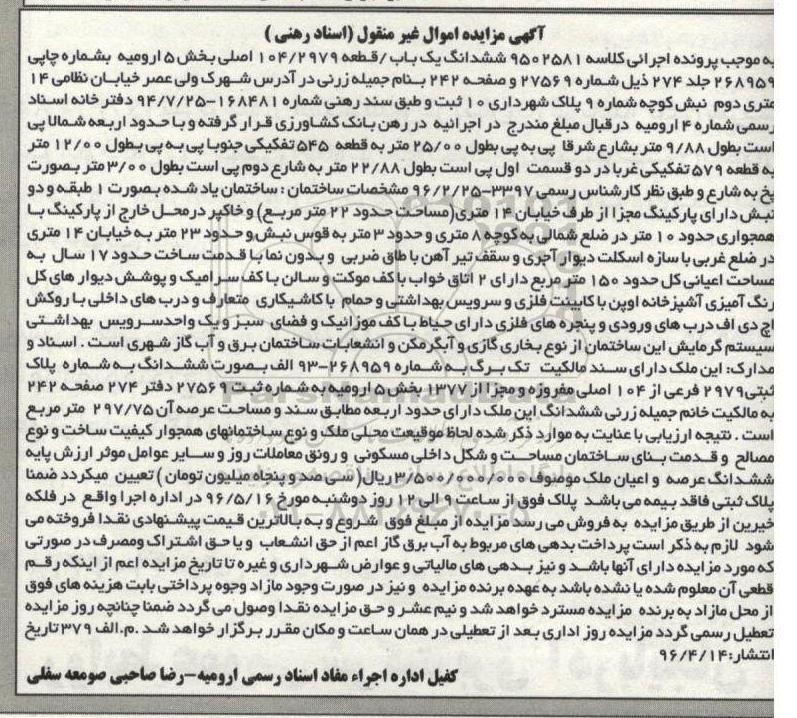 آگهی مزایده اموال غیر منقول (اسناد رهنی)
به موجب پرونده اجرائی کلاسه ۹۵۰۲۵۸۱ ششدانگ یک باب / قطعه ۱۰۴/۲۹۷۹ اصلی بخش ۵ ارومیه بشماره چاپی
۲۶۸۹۵۹ جلد ۲۷۴ ذیل شماره ۲۷۵۶۹ و صفحه ۲۴۲ بنام جمیله زرنی در آدرس شهرک ولی عصر خیابان نظامی ۱۴
متری دوم نبش کوچه شماره ۹ پلاک شهرداری ۱۰ ثبت و طبق سند رهنی شماره ۱۶۸۴۸۱-۹۴/۷/۲۵ دفتر خانه اسناد
رسمی شماره ۴ ارومیه درقبال مبلغ مندرج در اجرائیه در رهن بانک کشاورزی قرار گرفته و با حدود اربعه شمالا پی
است بطول ۹/۸۸ متر بشارع شرقا پی به پی بطول ۲۵/۰۰ متر به قطعه ۵۴۵ تفکیکی جنوبا پی به پی بطول ۱۲/۰۰ متر
به قطعه ۵۷۹ تفکیکی غربا در دو قسمت اول پی است بطول ۲۲/۸۸ متر به شارع دوم پی است بطول ۳/۰۰ متر بصورت
پخ به شارع و طبق نظر کارشناس رسمی ۳۳۹۷-۹۶/۲/۲۵ مشخصات ساختمان : ساختمان یاد شده بصورت ۱ طبقه و دو
نبش دارای پارکینگ مجزا از طرف خیابان ۱۴ متری (مساحت حدود ۲۲ متر مربع) و خاکپر درمحل خارج از پارکینگ با
همجواری حدود ۱۰ متر در ضلع شمالی به کوچه ۸ متری و حدود ۳ متر به قوس نبش و حدود ۲۳ متر به خیابان ۱۴ متری
در ضلع غربی با سازه اسکلت دیوار آجری و سقف تیر آهن با طاق ضربی و بدون نما با قدمت ساخت حدود ۱۷ سال به
مساحت اعیانی کل حدود ۱۵۰ متر مربع دارای ۲ اتاق خواب با کف موکت و سالن با کف سرامیک و پوشش دیوار های کل
رنگ آمیزی آشپزخانه اوپن با کابینت فلزی و سرویس بهداشتی و حمام با کاشیکاری متعارف و درب های داخلی با روکش
اچ دی اف درب های ورودی و پنجره های فلزی دارای حیاط با کف موزائیک و فضای سبز و یک واحدسرویس بهداشتی
سیستم گرمایش این ساختمان از نوع بخاری گازی و آبگرمکن و انشعابات ساختمان برق و آب گاز شهری است . اسناد و
مدارک : این ملک دارای سند مالکیت تک برگ به شماره ۲۶۸۹۵۹-۹۳ الف بصورت ششدانگ به شماره پلاک
ثبتی ۲۹۷۹ فرعی از ۱۰۴ اصلی مفروزه و مجزا از ۱۳۷۷ بخش ۵ ارومیه به شماره ثبت ۲۷۵۶۹ دفتر ۲۷۴ صفحه ۲۴۲
به مالکیت خانم جمیله زرنی ششدانگ این ملک دارای حدود اربعه مطابق سند و مساحت عرصه آن ۲۹۷/۷۵ متر مربع
است . نتیجه ارزیابی با عنایت به موارد ذکر شده لحاظ موقیعت محلی ملک و نوع ساختمانهای همجوار کیفیت ساخت و نوع
مصالح و قدمت بنای ساختمان مساحت و شکل داخلی مسکونی و رونق معاملات روز و سایر عوامل موثر ارزش پایه
ششدانگ عرصه و اعیان ملک موصوف ۳/۵۰۰/۰۰۰/۰۰۰ ریال( سی صد و پنجاه میلیون تومان ) تعیین میکردد ضمنا
پلاک ثبتی فاقد بیمه می باشد پلاک فوق از ساعت ۹ الی ۱۲ روز دوشنبه مورخ ۹۶/۵/۱۶ در اداره اجرا واقع در فلکه
خیرین از طریق مزایده به فروش می رسد مزایده از مبلغ فوق شروع و به بالاترین قیمت پیشنهادی نقدا فروخته می
شود لازم به ذکر است پرداخت بدهی های مربوط به آب برق گاز اعم از حق انشعاب و یا حق اشتراک ومصرف در صورتی
که مورد مزایده دارای آنها باشد و نیز بدهی های مالیاتی و عوارض شهرداری و غیره تا تاریخ مزایده اعم از اینکه رقم
قطعی آن معلوم شده یا نشده باشد به عهده برنده مزایده و نیز در صورت وجود مازاد وجوه پرداختی بابت هزینه های فوق
از محل مازاد به برنده مزایده مسترد خواهد شد و نیم عشر و حق مزایده نقدا وصول می گردد ضمنا چنانچه روز مزایده
تعطیل رسمی گردد مزایده روز اداری بعد از تعطیلی در همان ساعت و مکان مقرر برگزار خواهد شد .م.الف ۳۷۹ تاریخ
انتشار: ۹۶/۴/۱۴
کفیل اداره اجراء مفاد اسناد رسمی ارومیه-رضا صاحبی صومعه سفلی
ParsNamadData